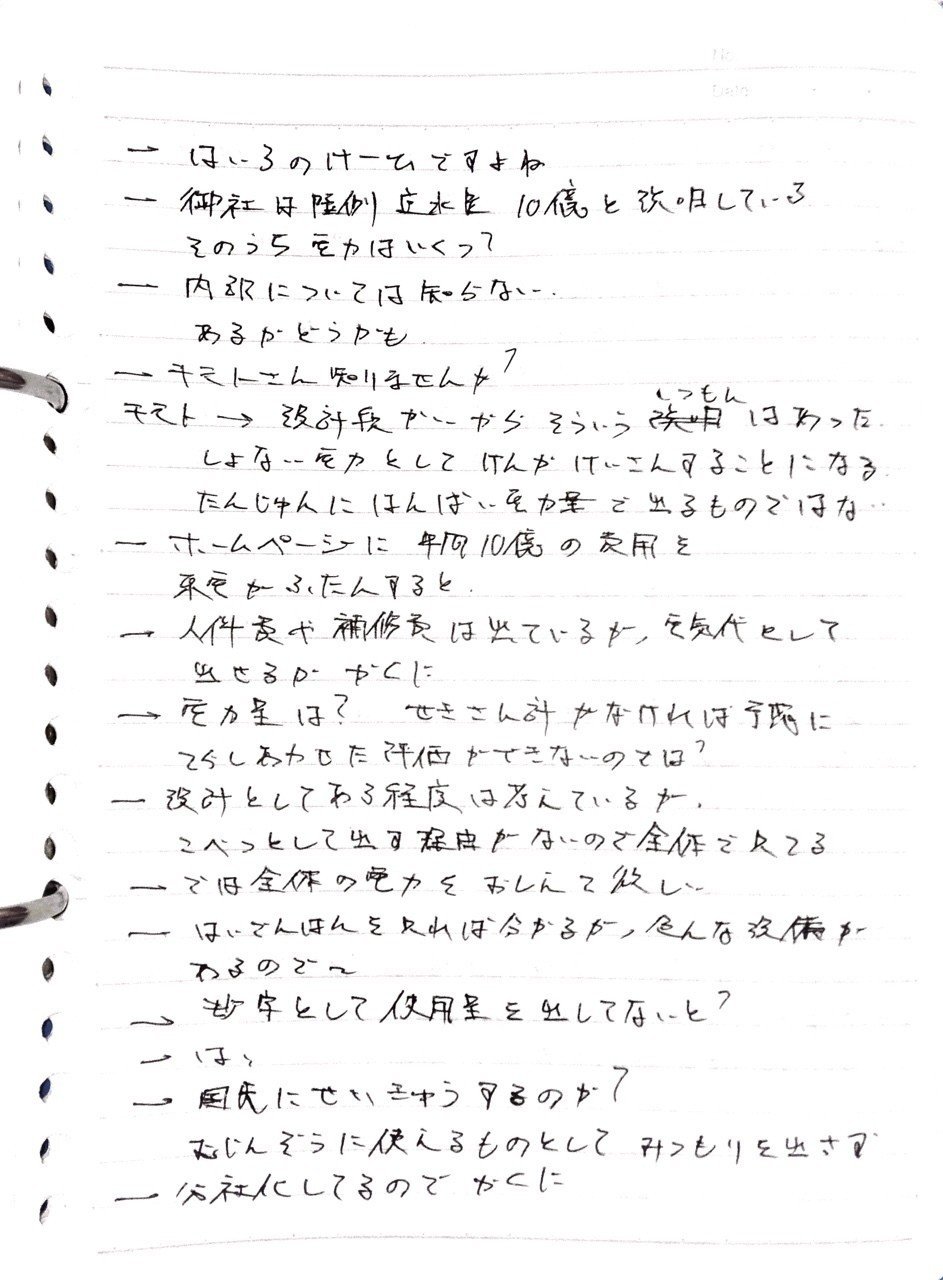 No.
Date
— はいろのけーひですよね
— 御社は陸側遮水壁 10億と説明している
そのうち電力はいくつ?
— 内訳については知らない
あるかどうかも
→ キモトさん知りませんか?
しつもん
キモト → 設計段かいから そういう 説明 はあった
しょない電力として けんか けいさんすることになる
たんじゅんに はんばい電力量で出るものではない
— ホームページに 年間10億の費用を
東電がふたんすると
→ 人件費や補修費は出ているが、電気代として
出せるか かくに
→ 電力量は? せきさん計がなければ予

てらしあわせた評価ができないのでは?
— 設計としてある程度は考えているが、
こべつとして出す理由がないので全体で見てる
— では全体の電力をおしえて欲しい
— はいでんばんを見れば分かるが、色んな設備が
あるので〜
→ 数字として使用量を出してないと?
→ はい
→ 国民にせいきゅうするのか?
むじんぞうに使えるものとして みつもりを出さず
— 分社化してるので かくに